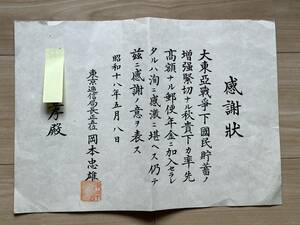 感謝狀
大東亞戰爭下國民貯蓄ノ
增强緊切ナル秋貴下カ率先
高額ナル郵便年金ニ加入セラレ
タルハ洵ニ感激ニ堪ヘス仍テ
茲ニ感謝ノ意ヲ表ス
昭和十八年五月八日
東京遞信局長正五位 岡本忠雄
孝殿